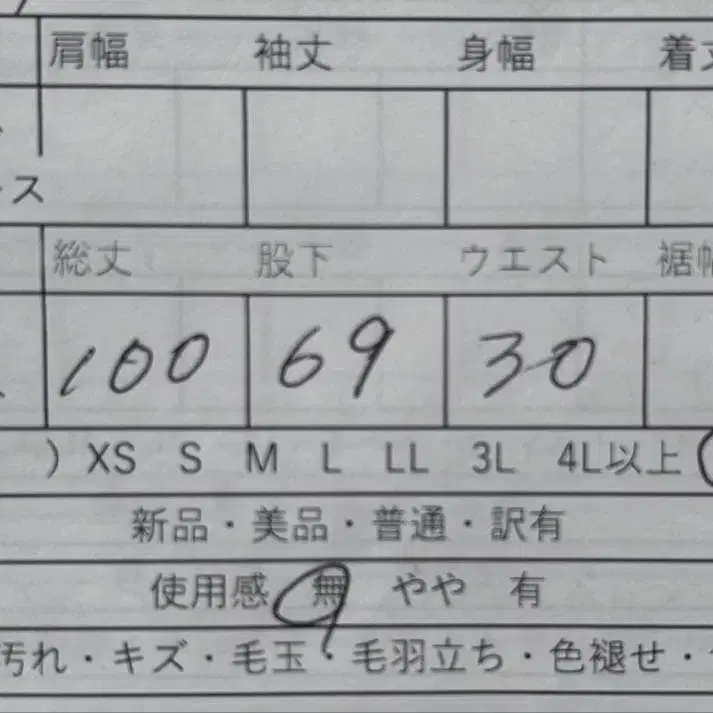 肩幅 袖丈 身幅 着丈
ース
総丈 股下 ウエスト 裾幅
100 69 30
) XS S M L LL 3L 4L以上
新品・美品・普通・訳有
使用感 無 やや 有
汚れ・キズ・毛玉・毛羽立ち・色褪せ・